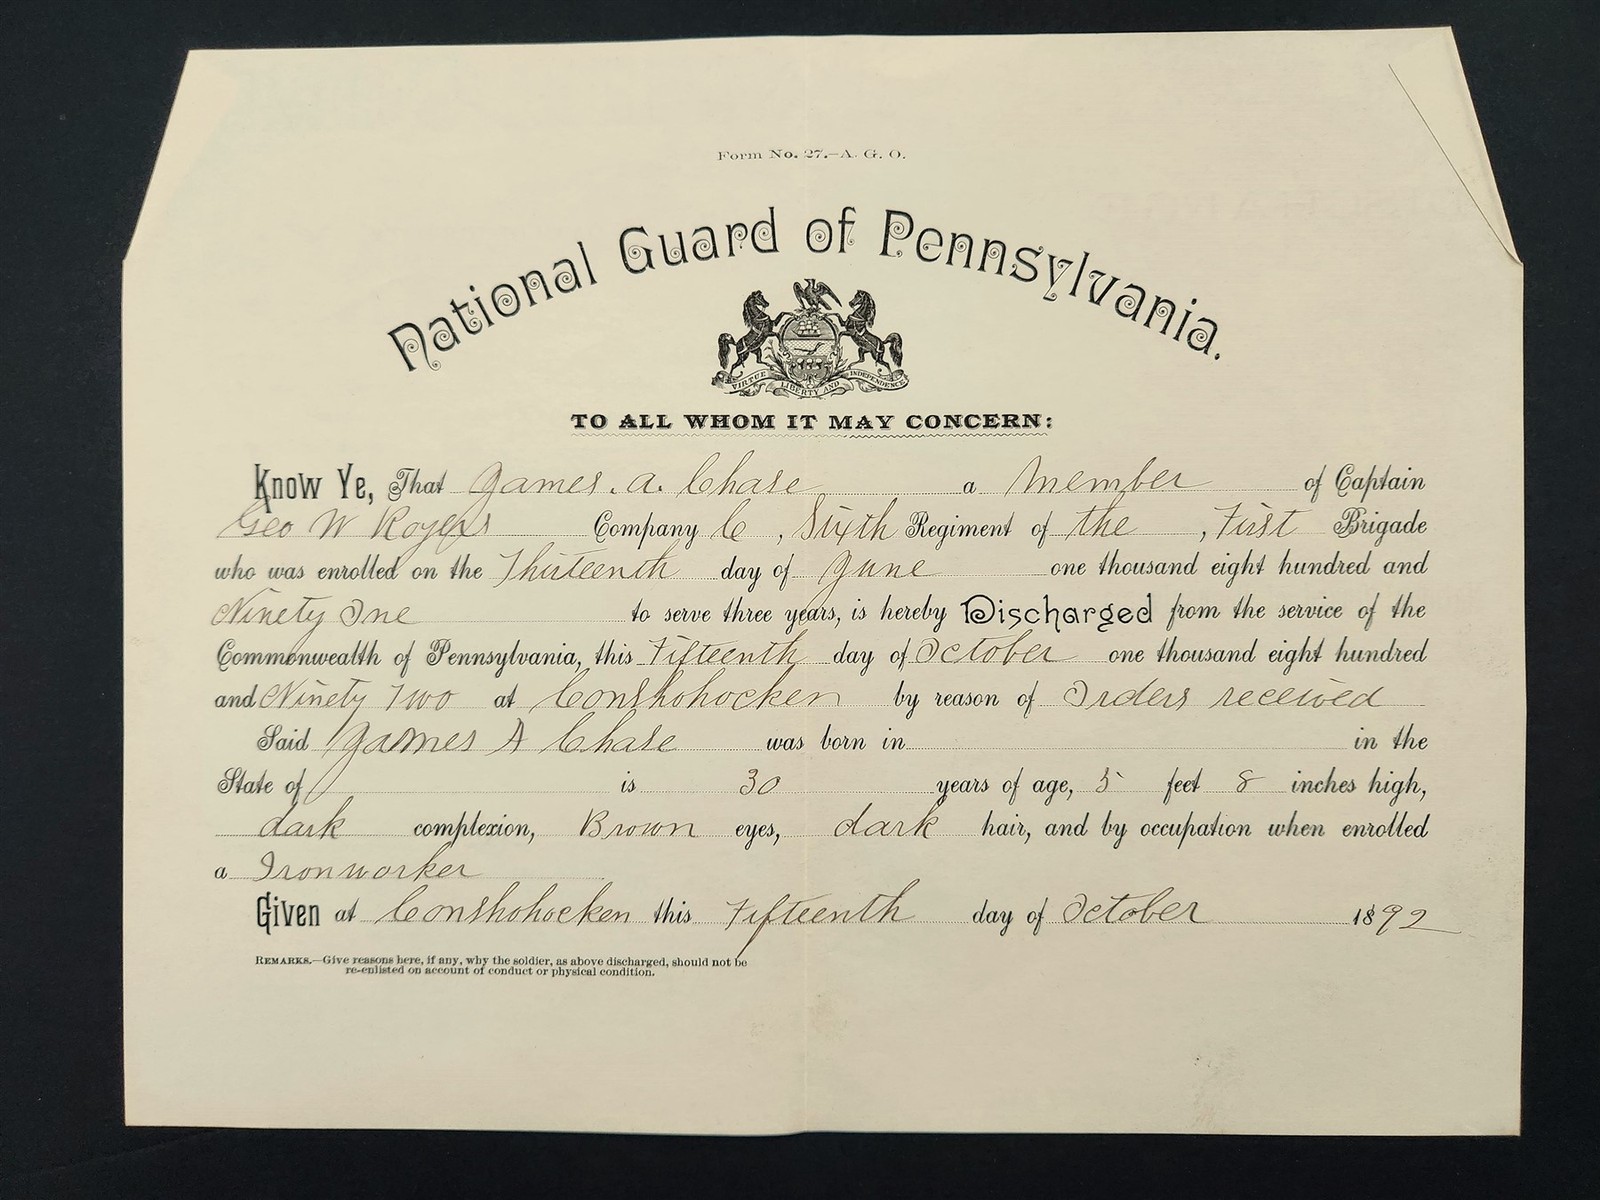 Form No. 27.—A. G. O.
National Guard of Pennsylvania.
VIRTUE LIBERTY AND INDEPENDENCE
TO ALL WHOM IT MAY CONCERN:
Know Ye, That James. A. Chase a Member of Captain
Geo W Rogers Company C, Sixth Regiment of the, First Brigade
who was enrolled on the Thirteenth day of June one thousand eight hundred and
Ninety One to serve three years, is hereby Discharged from the service of the
Commonwealth of Pennsylvania, this Fifteenth day of October one thousand eight hundred
and Ninety Two at Conshohocken by reason of Orders received
Said James A Chase was born in in the
State of is 30 years of age, 5 feet 8 inches high,
dark complexion, Brown eyes, dark hair, and by occupation when enrolled
a Ironworker
Given at Conshohocken this Fifteenth day of October 1892
REMARKS.—Give reasons here, if any, why the soldier, as above discharged, should not be
re-enlisted on account of conduct or physical condition.